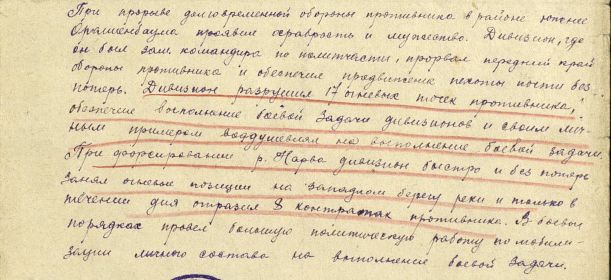 При прорыве долговременной обороны противника в районе южнее
проявил храбрость и мужество. Дивизион, где
он был зам. командира по политчасти, прорвал передний край
обороны противника и обеспечил продвижение пехоты почти без-
потерь. Дивизион разрушил 17 огневых точек противника,
обеспечив выполнение боевой задачи дивизионов и своим лич-
ным примером воодушевлял на выполнение боевой задачи.
При форсировании р. Нарва дивизион быстро и без потерь
занял огневые позиции на западном берегу реки и только в
течении дня отразил 8 контратак противника. В боевых
порядках провел большую политическую работу по мобили-
зации личного состава на выполнение боевой задачи.